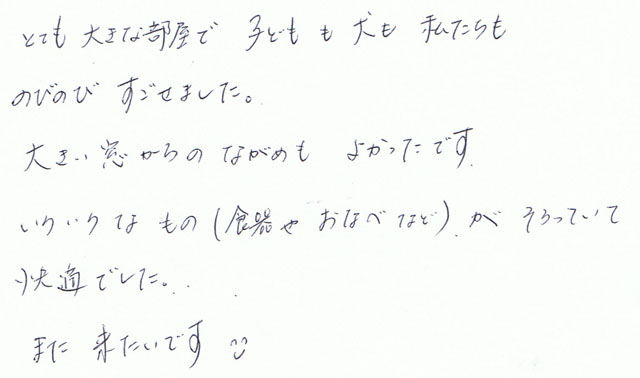 とても 大きな部屋で 子どもも 犬も 私たちも
のびのび すごせました。
大きい窓からの ながめも よかったです
いろいろなもの(食器や おなべなど)が そろっていて
快適でした。
また 来たいです